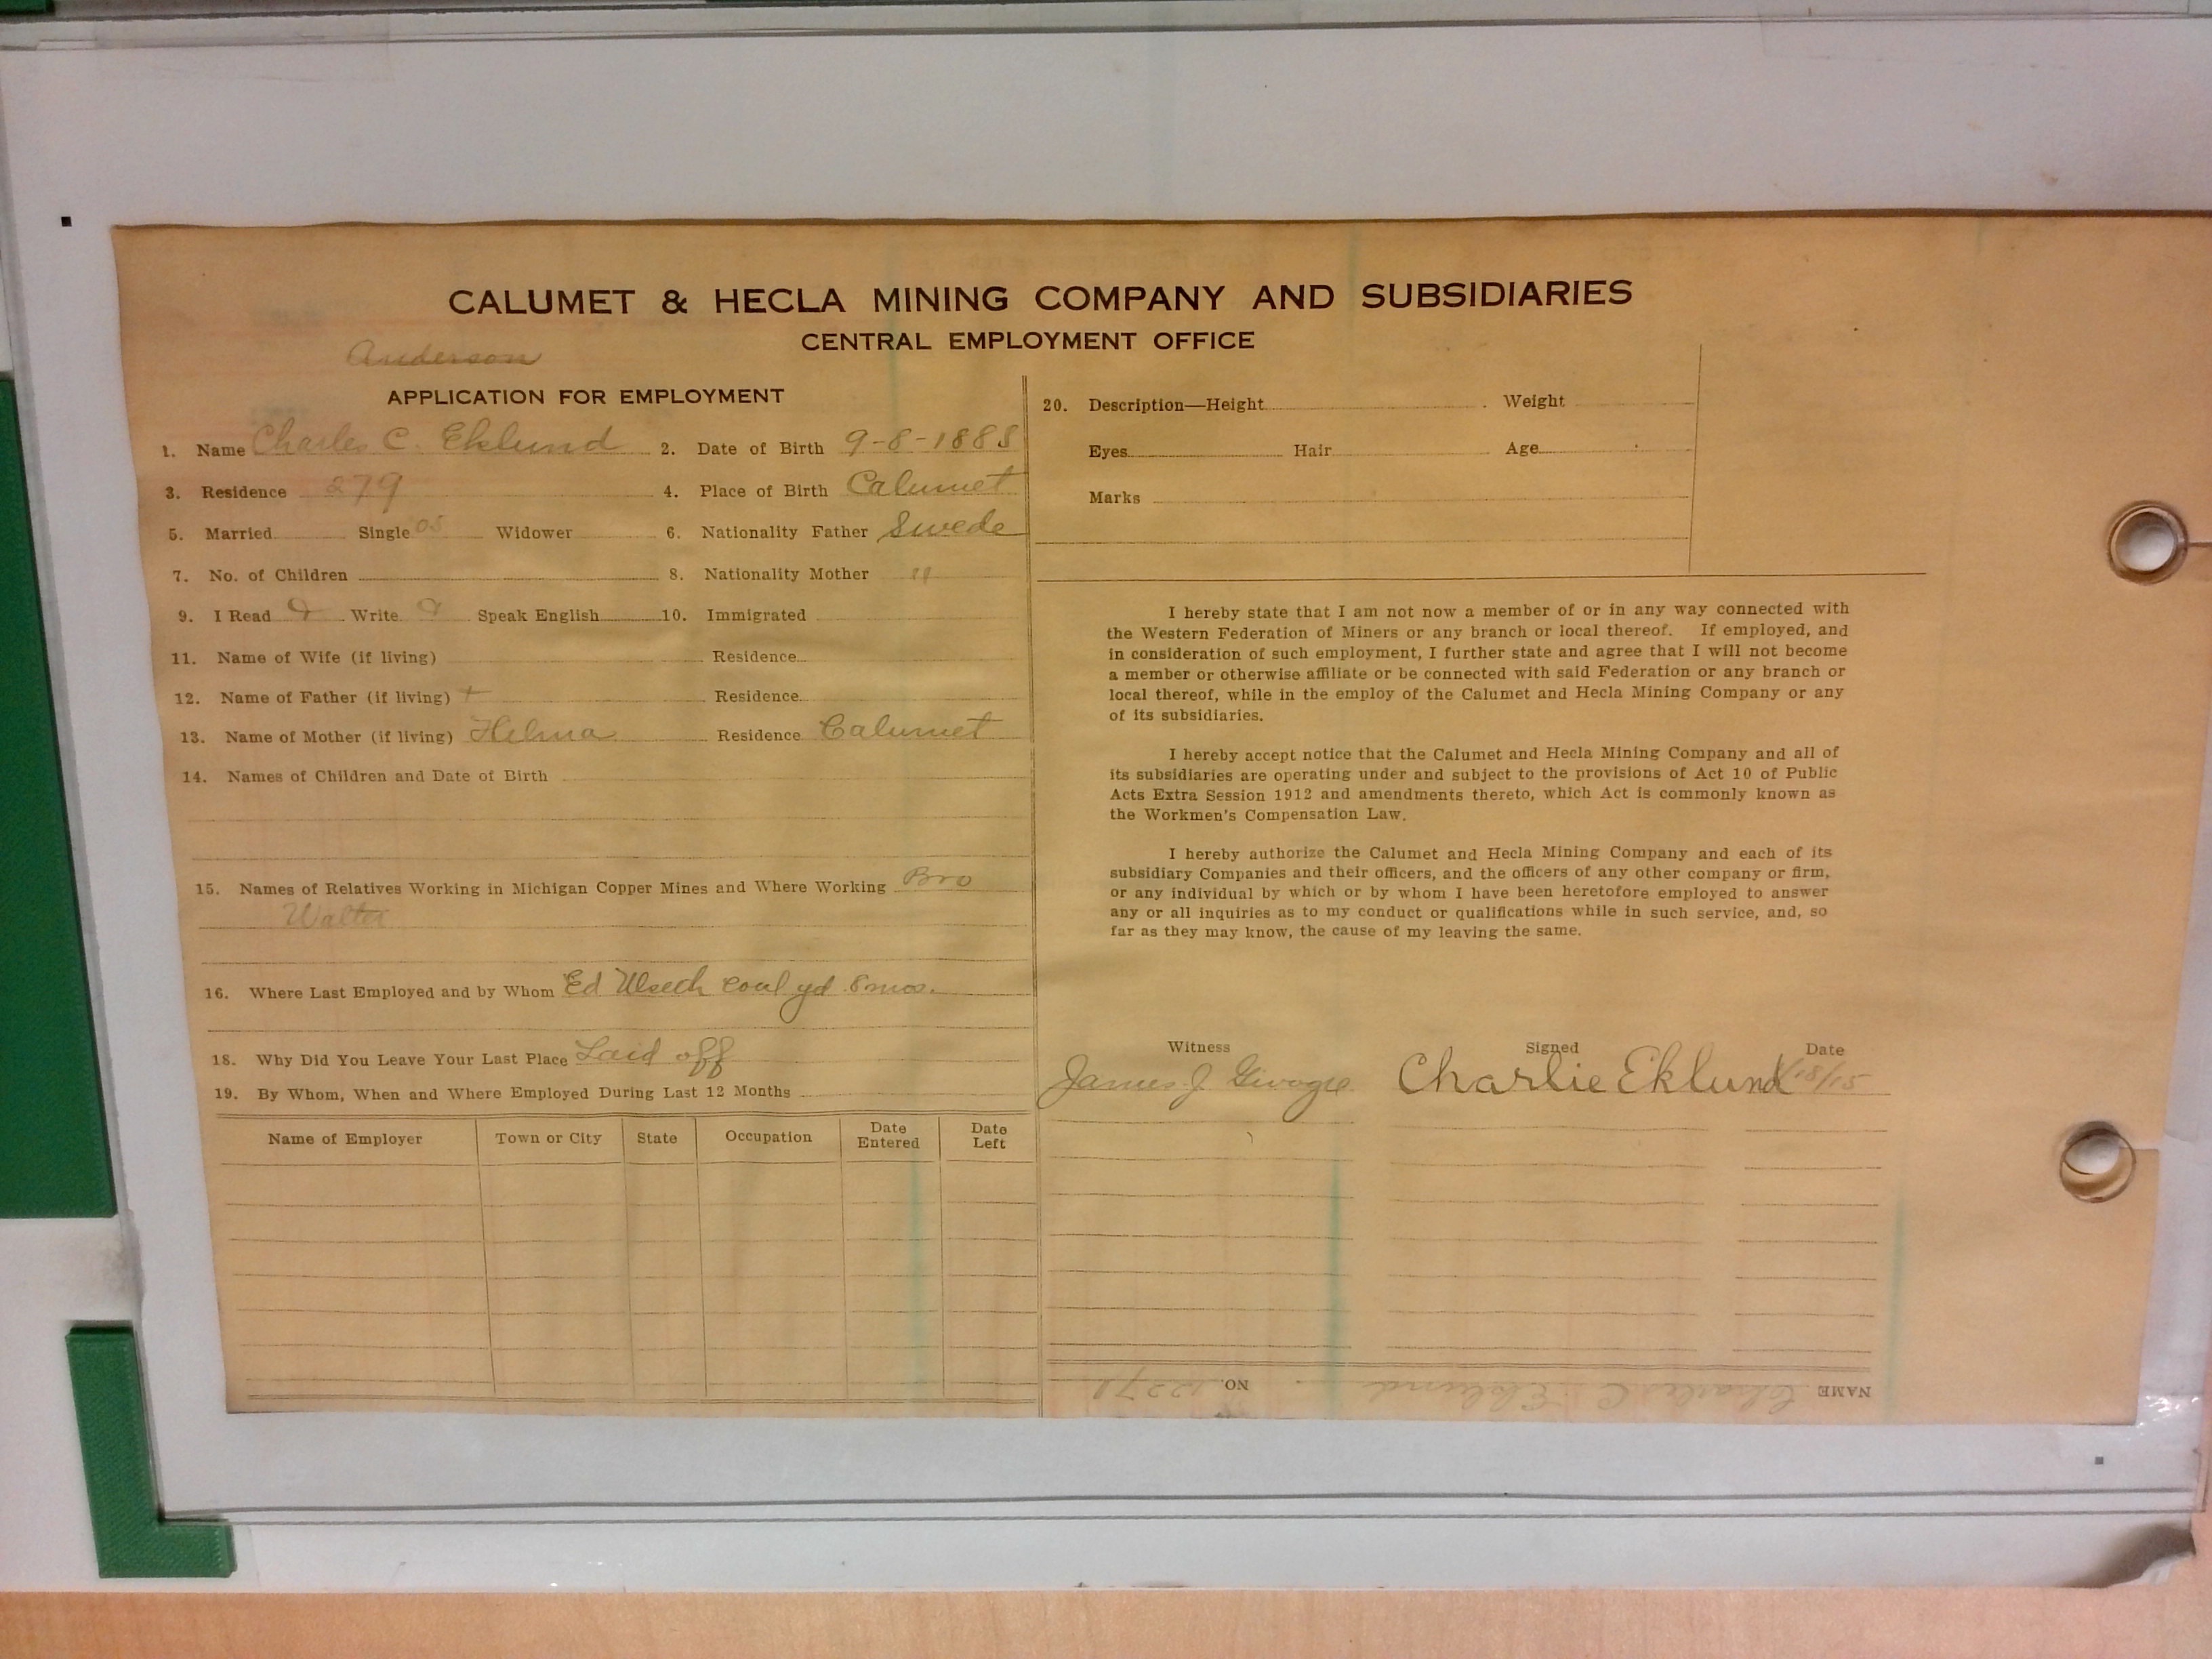 CALUMET & HECLA MINING COMPANY AND SUBSIDIARIES
CENTRAL EMPLOYMENT OFFICE
Anderson
APPLICATION FOR EMPLOYMENT
1. Name Charles C. Eklund 2. Date of Birth 9-8-1888
3. Residence 279 4. Place of Birth Calumet
5. Married Single Widower 6. Nationality Father Swede
7. No. of Children 8. Nationality Mother "
9. I Read Write Speak English 10. Immigrated
11. Name of Wife (if living) Residence
12. Name of Father (if living) + Residence
13. Name of Mother (if living) Helma Residence Calumet
14. Names of Children and Date of Birth
15. Names of Relatives Working in Michigan Copper Mines and Where Working Bro
Walter
16. Where Last Employed and by Whom Ed coal yd 8 mos.
18. Why Did You Leave Your Last Place Laid off
19. By Whom, When and Where Employed During Last 12 Months
Name of Employer Town or City State Occupation Date Entered Date Left
20. Description—Height Weight
Eyes Hair Age
Marks
I hereby state that I am not now a member of or in any way connected with
the Western Federation of Miners or any branch or local thereof. If employed, and
in consideration of such employment, I further state and agree that I will not become
a member or otherwise affiliate or be connected with said Federation or any branch or
local thereof, while in the employ of the Calumet and Hecla Mining Company or any
of its subsidiaries.
I hereby accept notice that the Calumet and Hecla Mining Company and all of
its subsidiaries are operating under and subject to the provisions of Act 10 of Public
Acts Extra Session 1912 and amendments thereto, which Act is commonly known as
the Workmen's Compensation Law.
I hereby authorize the Calumet and Hecla Mining Company and each of its
subsidiary Companies and their officers, and the officers of any other company or firm,
or any individual by which or by whom I have been heretofore employed to answer
any or all inquiries as to my conduct or qualifications while in such service, and, so
far as they may know, the cause of my leaving the same.
Witness Signed Date
James J. Charlie Eklund
NAME Charles C. Eklund NO. 12271